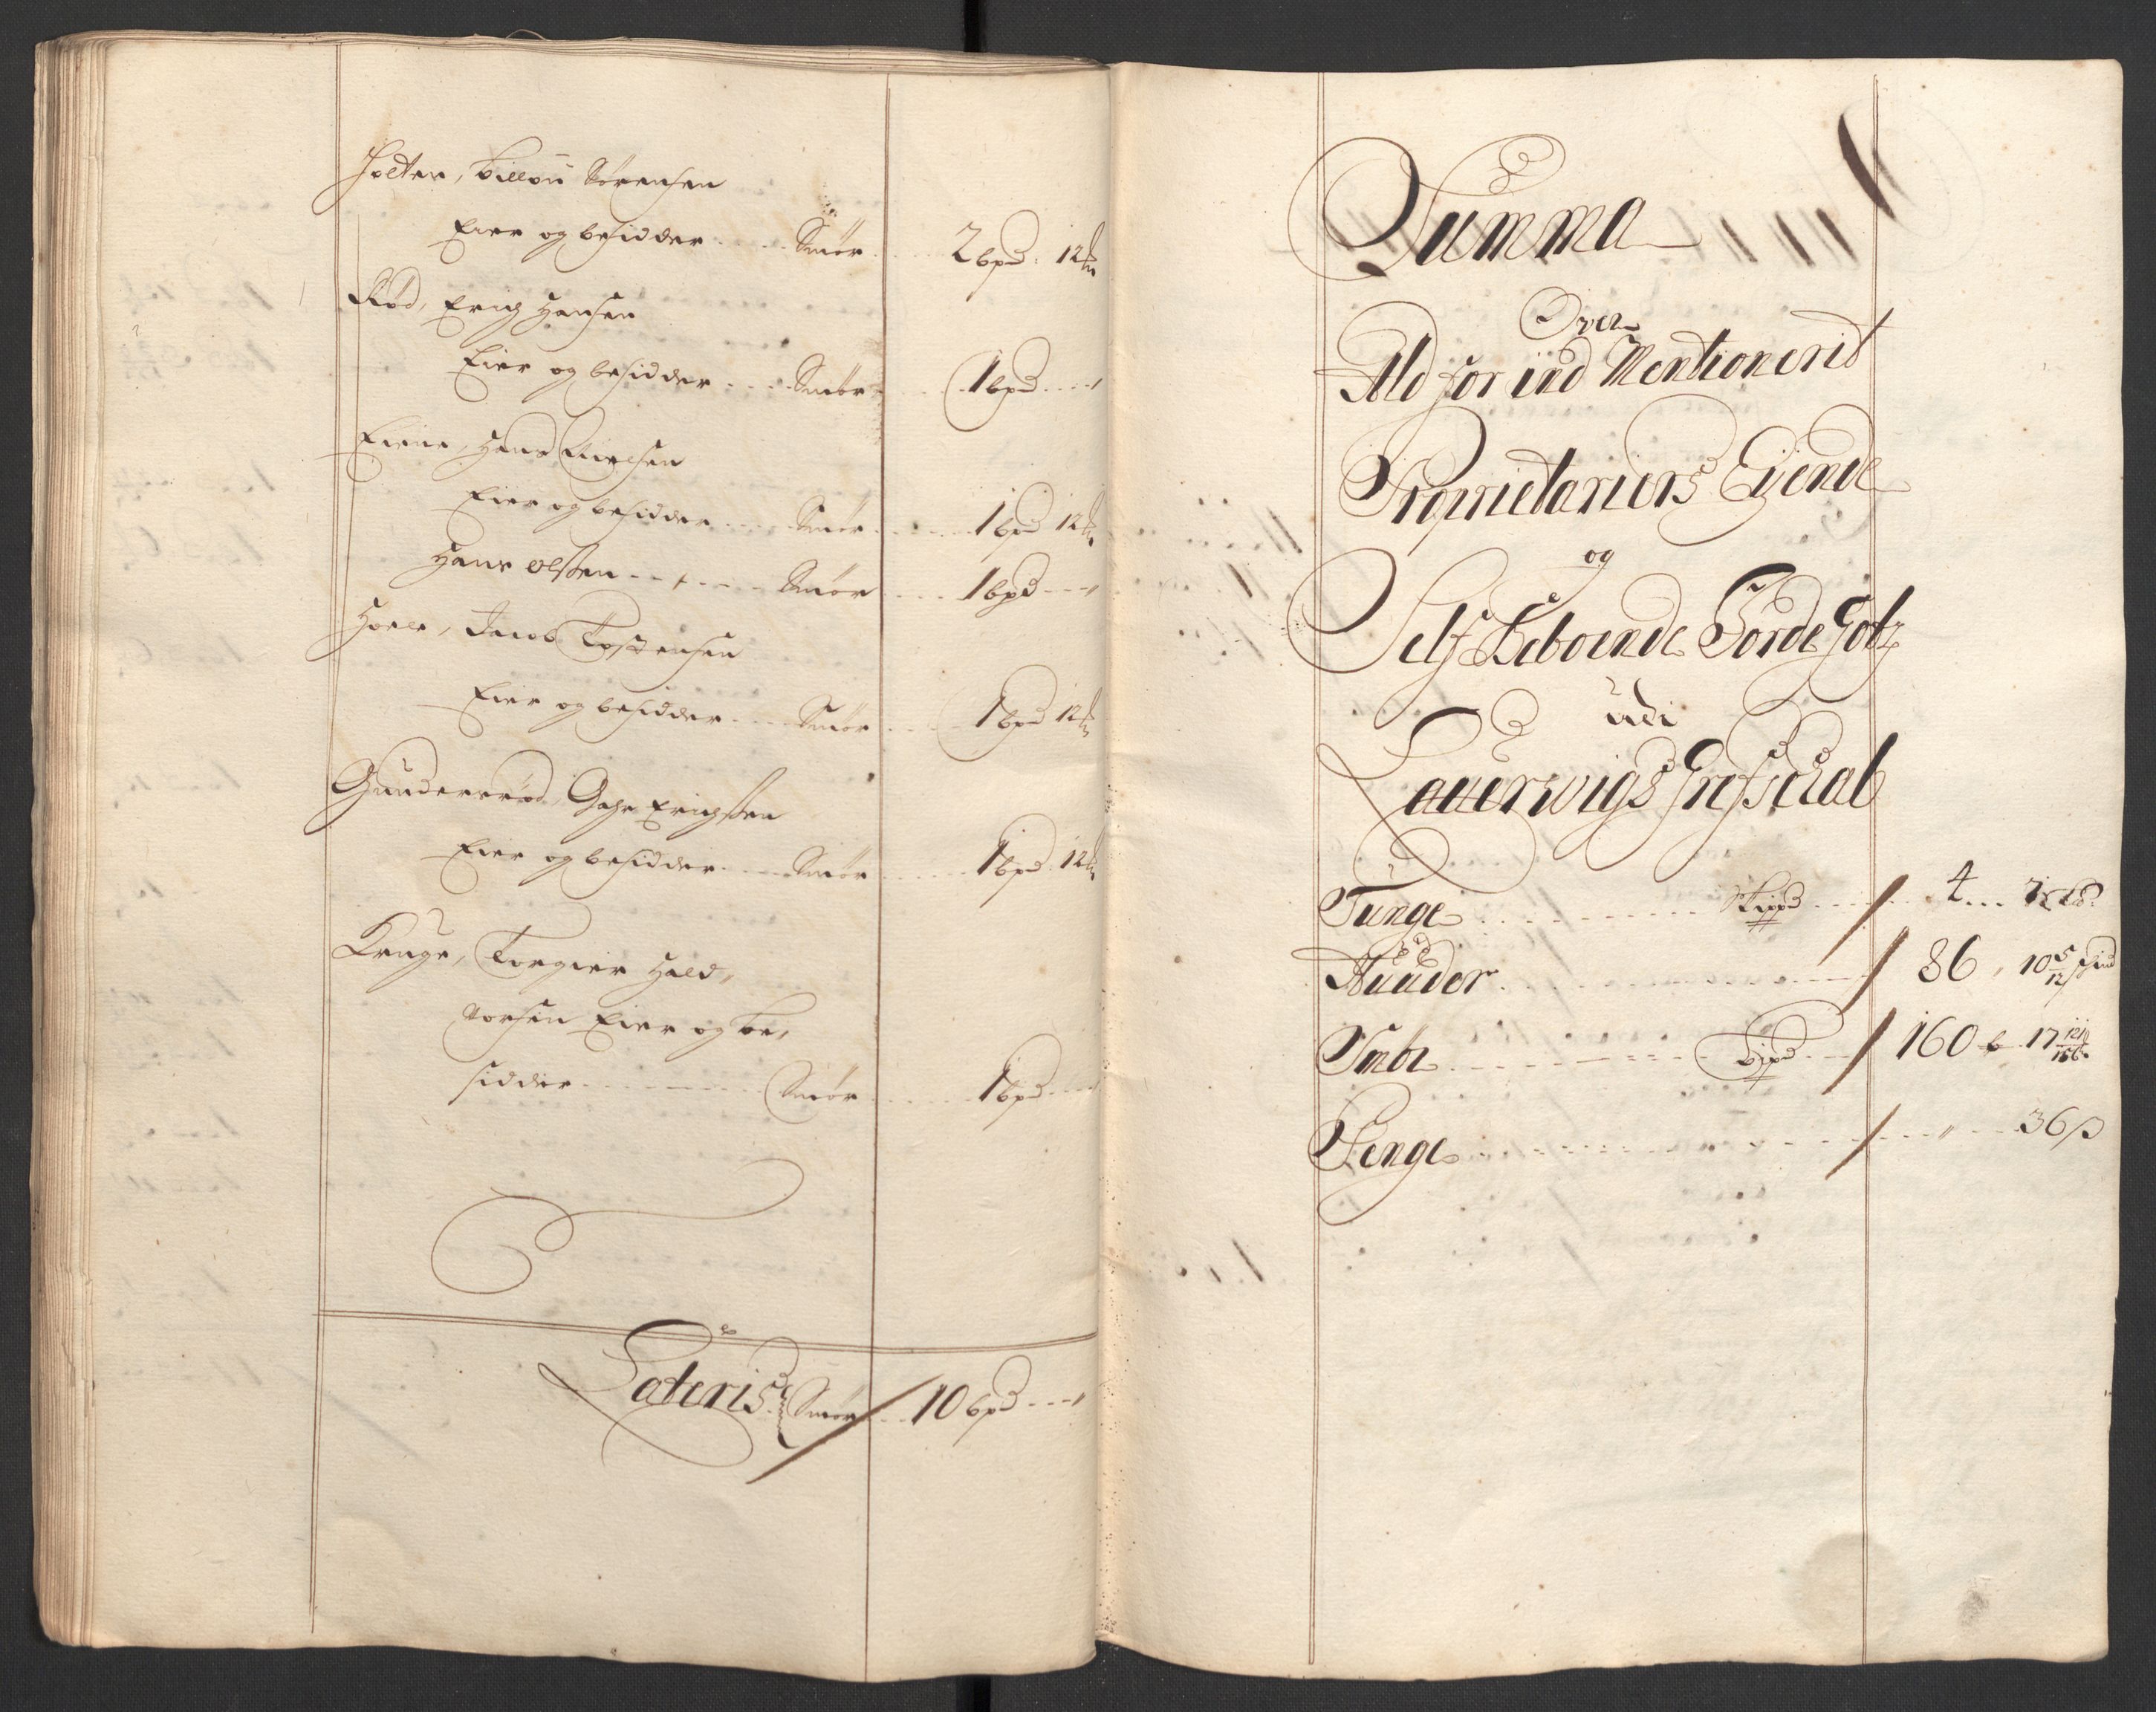 Holter, Sørensen
Eier og besidder .... Smør .... 2 bpd: 12
Røed, Erich Hansen
Eier og besidder .... Smør .... 1 bpd ...."
Hans Nielsen
Eier og besidder .... Smør .... 1 bpd 12
Hans Olsen ........ Smør .... 1 bpd ...."
Jacob Tostensen
Eier og besidder .... Smør .... 1 bpd 12
Gunderrød, Erichsen
Eier og besidder .... Smør .... 1 bpd: 12
Kruge, Torgier Hald,
vorsen Eier og be,
sidder ........ Smør .... 1 bpd ....
Lateris Smør .. 10 bpd ...."
Summa
Over
Ald for ind Mentionerit
Proprietariers Eijende
og
Self Beboende Jorde Gotz
udi
Laurwigs Grefschab
Tunge ........ Skippd .... 4 ...
Huuder ........ 86, 10 5/12
Smör ........ Bpd .... 160 17
Penge ........ " ... 36 β